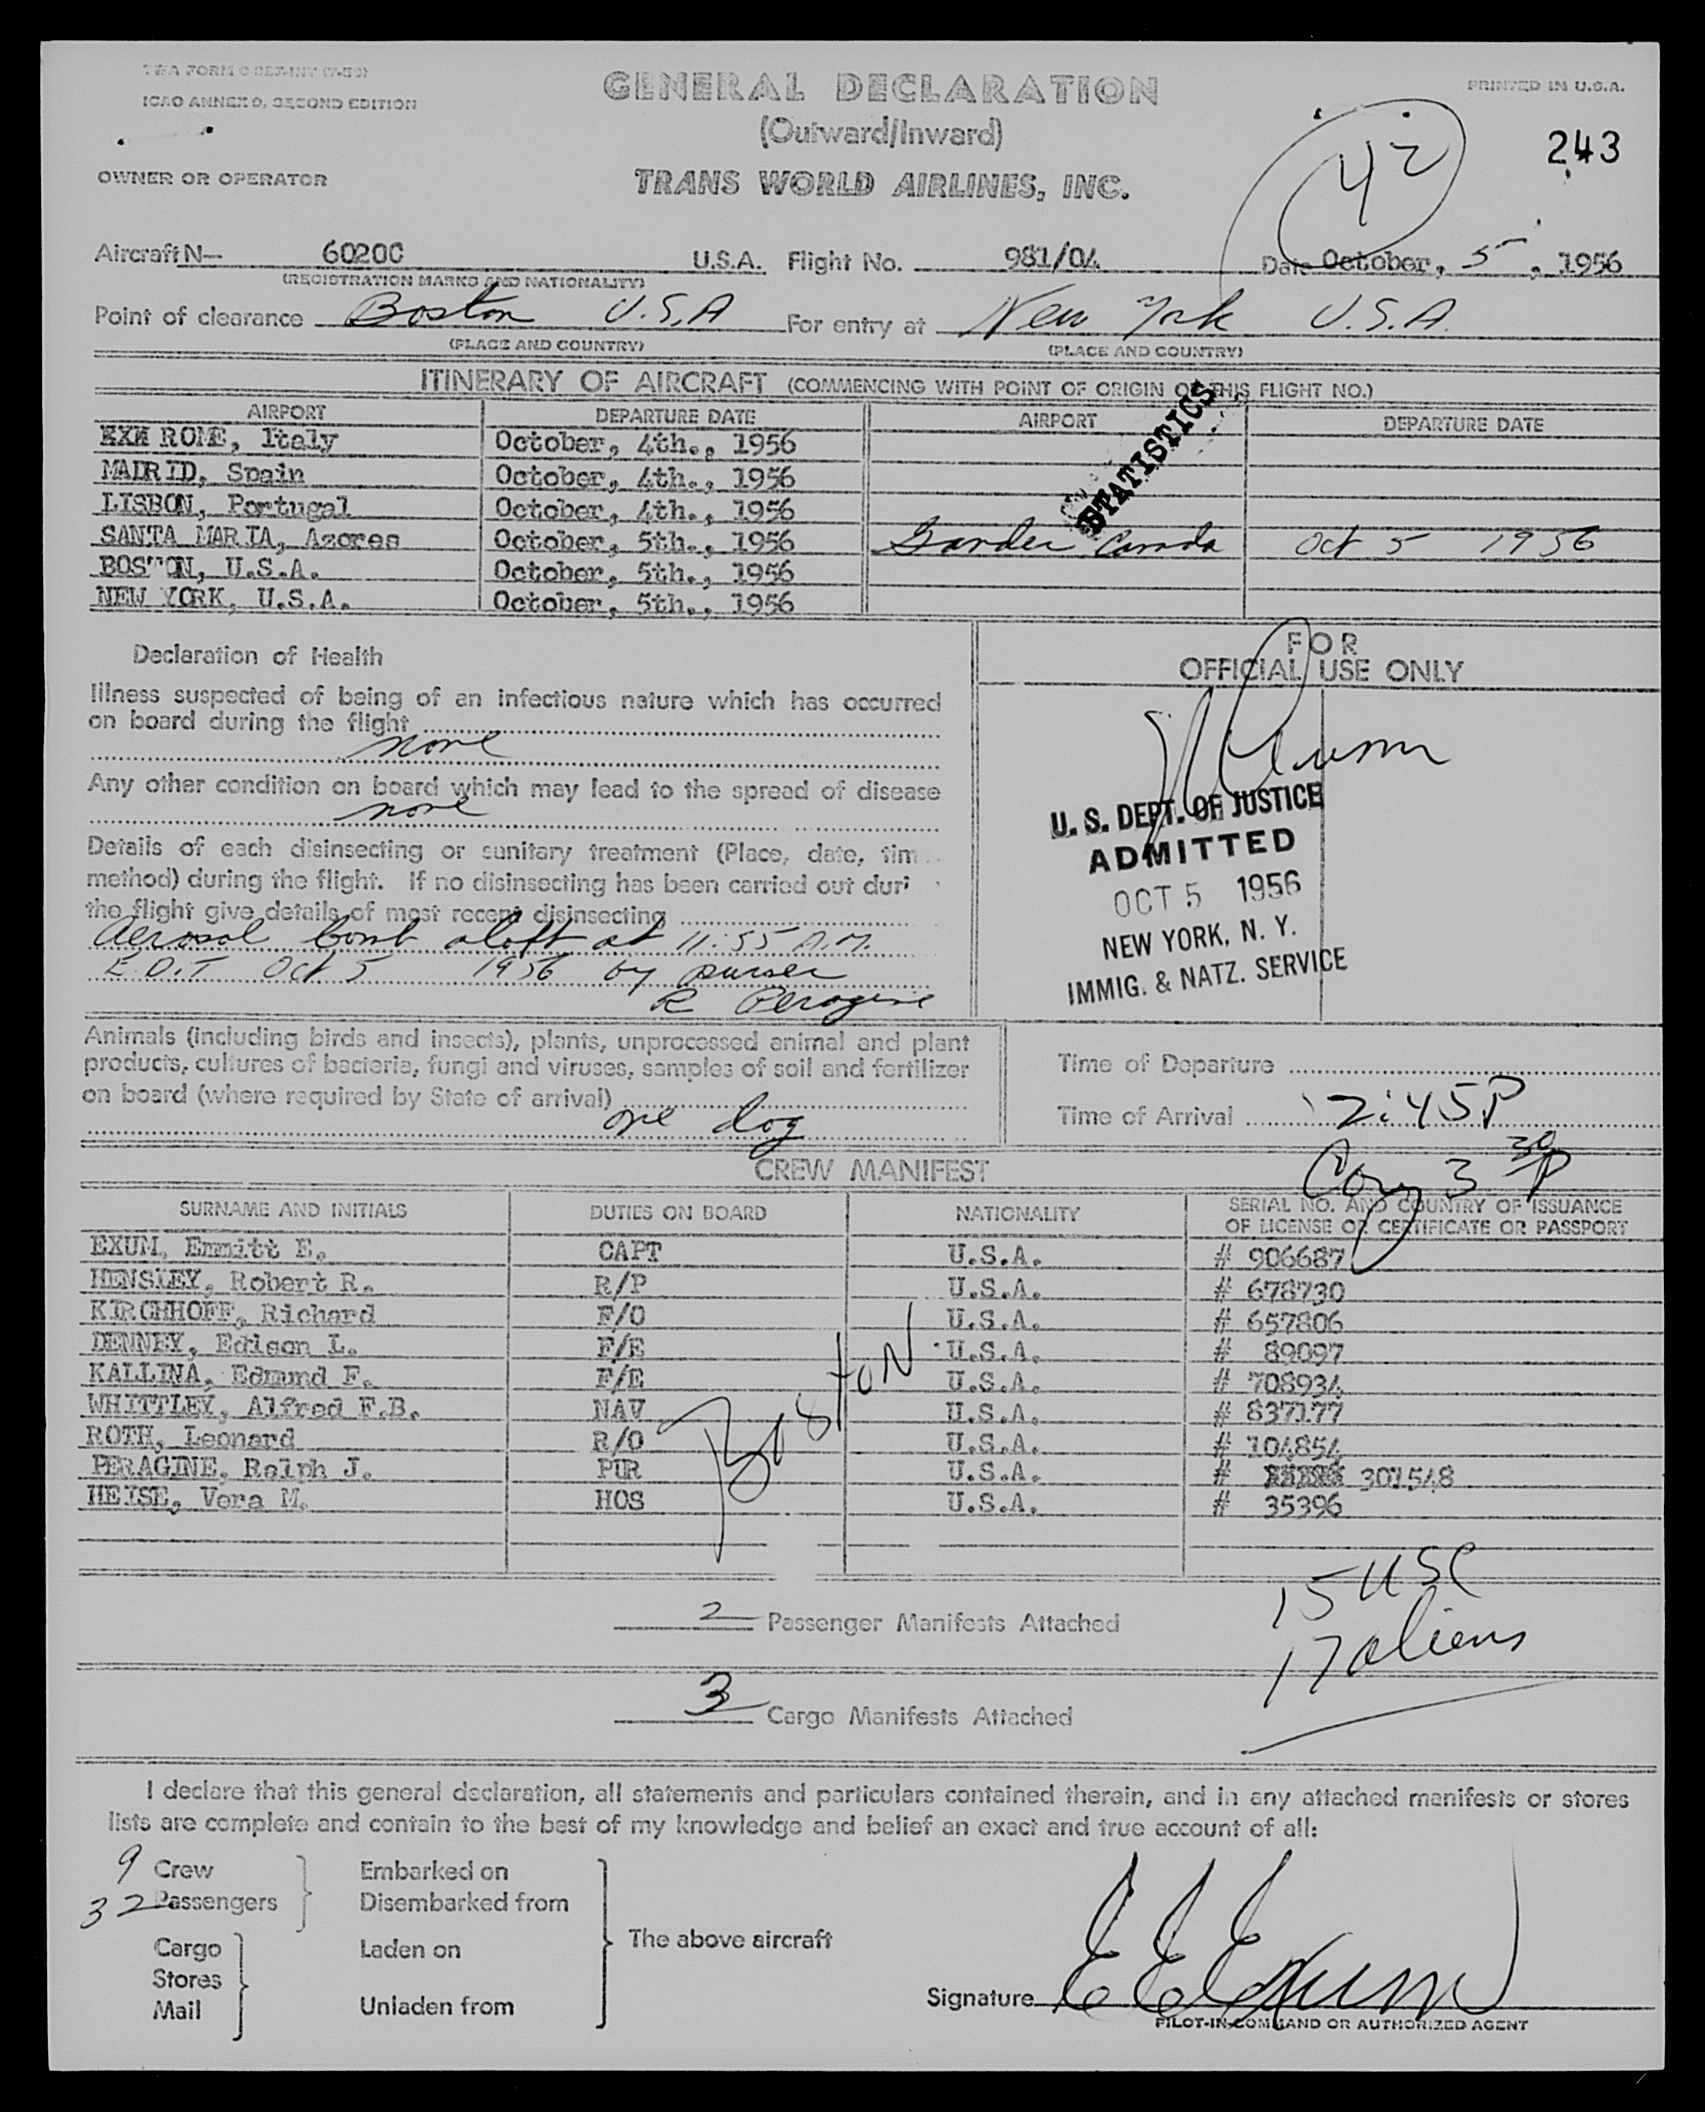 ICAO ANNEX 9, SECOND EDITION
GENERAL DECLARATION
(Outward/Inward)
PRINTED IN U.S.A.
42
243
OWNER OR OPERATOR
TRANS WORLD AIRLINES, INC.
Aircraft N— 6020C U.S.A. Flight No. 981/04 Date October, 5, 1956
(REGISTRATION MARKS AND NATIONALITY)
Point of clearance Boston U.S.A For entry at New York U.S.A.
(PLACE AND COUNTRY) (PLACE AND COUNTRY)
ITINERARY OF AIRCRAFT (COMMENCING WITH POINT OF ORIGIN OF THIS FLIGHT NO.)
STATISTICS
AIRPORT DEPARTURE DATE AIRPORT DEPARTURE DATE
ROME, Italy October, 4th., 1956
MADRID, Spain October, 4th., 1956
LISBON, Portugal October, 4th., 1956
SANTA MARIA, Azores October, 5th., 1956 Gander Canada Oct 5 1956
BOSTON, U.S.A. October, 5th., 1956
NEW YORK, U.S.A. October, 5th., 1956
Declaration of Health
Illness suspected of being of an infectious nature which has occurred
on board during the flight
none
Any other condition on board which may lead to the spread of disease
none
Details of each disinsecting or sanitary treatment (Place, date, tim
method) during the flight. If no disinsecting has been carried out duri
the flight give details of most recent disinsecting
Aerosol bomb aloft at 11:55 A.M.
E.D.T Oct 5 1956 by purser
R Peragine
FOR
OFFICIAL USE ONLY
U. S. DEPT. OF JUSTICE
ADMITTED
OCT 5 1956
NEW YORK, N. Y.
IMMIG. & NATZ. SERVICE
Animals (including birds and insects), plants, unprocessed animal and plant
products, cultures of bacteria, fungi and viruses, samples of soil and fertilizer
on board (where required by State of arrival)
one dog
Time of Departure
Time of Arrival 2:45P
3 30 P
CREW MANIFEST
SURNAME AND INITIALS DUTIES ON BOARD NATIONALITY SERIAL NO. AND COUNTRY OF ISSUANCE
OF LICENSE OR CERTIFICATE OR PASSPORT
EXUM, Emmitt E. CAPT U.S.A. # 906687
HENSLEY, Robert R. R/P U.S.A. # 678730
KIRCHHOFF, Richard F/O U.S.A. # 657806
DENNEY, Edison L. F/E U.S.A. # 89097
KALLINA, Edmund F. F/E U.S.A. # 708934
WHITTLEY, Alfred F.B. NAV U.S.A. # 837177
ROTH, Leonard R/O U.S.A. # 104854
PERAGINE, Ralph J. PUR U.S.A. # 301548
HEISE, Vera M. HOS U.S.A. # 35396
Boston
15 USC
17 aliens
2 Passenger Manifests Attached
3 Cargo Manifests Attached
I declare that this general declaration, all statements and particulars contained therein, and in any attached manifests or stores
lists are complete and contain to the best of my knowledge and belief an exact and true account of all:
9 Crew Embarked on
32 Passengers Disembarked from
The above aircraft
Cargo Laden on
Stores
Mail Unladen from
Signature E E Exum
PILOT-IN-COMMAND OR AUTHORIZED AGENT